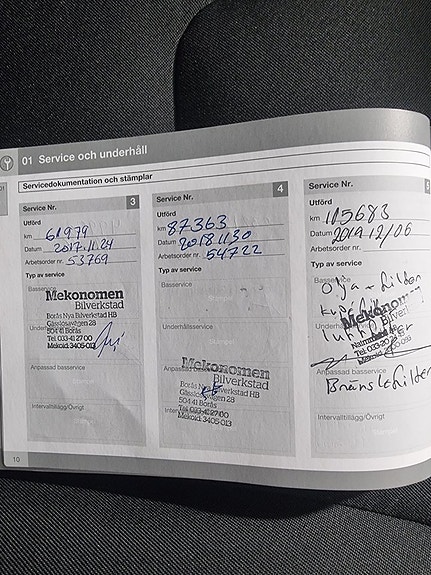 01 Service och underhåll
01
Servicedokumentation och stämplar
Service Nr. 3
Utförd
km 61979
Datum 2017.11.24
Arbetsorder nr. 53769
Typ av service
Basservice
Mekonomen
Bilverkstad
Borås Nya Bilverkstad HB
Gässlösavägen 28
504 41 Borås
Tel 033-41 27 00
Mekoid: 3405-013
Anpassad basservice
Intervalltillägg/Övrigt
10
Service Nr. 4
Utförd
km 87363
Datum 20181130
Arbetsorder nr. 54722
Typ av service
Basservice
Stämpel
Underhållsservice
Anpassad basservice
Mekonomen
Bilverkstad
Borås Nya Bilverkstad HB
Gässlösavägen 28
504 41 Borås
Tel 033-41 27 00
Mekoid: 3405-013
Service Nr. 5
Utförd
km 105683
Datum 2019 12/06
Arbetsorder nr.
Typ av service
Basservice
Olja + filter
Mekonomen
Anpassad basservice
Bränslefilter
Intervalltillägg/Övrigt